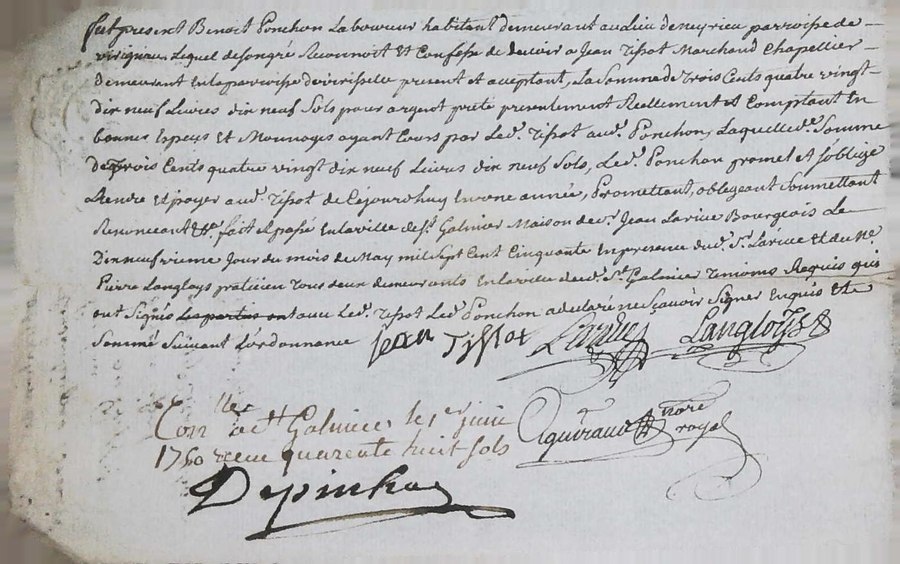 fut present Benoit Ponchon Laboureur habitant demeurant au lieu de neyrieu parroisse de
virignieu Lequel de son gré Reconnoit Et Confesse de devoir a Jean Tissot Marchand Chapellier
demeurant En la parroisse de present et aceptant, La Somme de Trois Cents quatre vingt
dix neuf Livres dix neuf Sols pour argent prété presentement Reellement et Comptant En
bonnes Especes Et Monnoyes ayant Cours par Led. Tissot aud. Ponchon, Laquelle d. Somme
de Trois Cents quatre vingt dix neuf Livres dix neuf Sols, Led. Ponchon promet et s'oblige
Rendre Et payer aud. Tissot de Cejourdhuy En une année, Promettant, obligeant Soumettant
Renonceant &c. fait Et passé En la ville de St. Galmier Maison de sr. Jean Larive Bourgeois Le
Dixneufvieme Jour du mois de May mil Sept Cent Cinquante En presence dud. Sr. Larive et de Me.
Pierre Langloys praticien Tous deux demeurants En la ville dud. St. Galmier Temoins Requis qui
ont Signés Les parties ont avec Led. Tissot Led. Ponchon a declaré ne Sçavoir Signer Enquis Et
Sommé Suivant L'ordonnance Jean Tissot Larive Langloys
Con. lle a St. Galmier le 1er juin
1750 receu quarente huit sols
Guiraud nore
royal
Depinhac